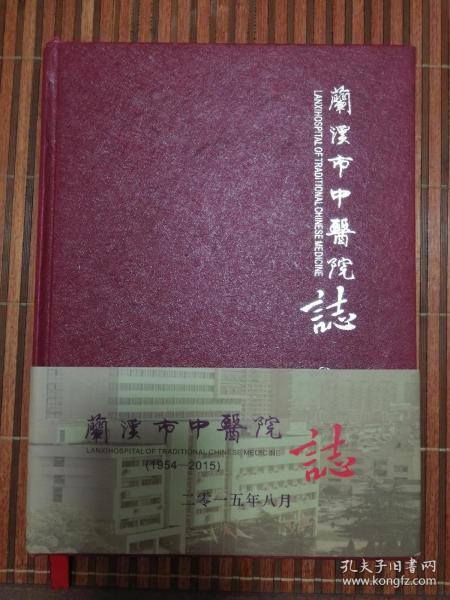 蘭溪市中醫院
LANXIHOSPITAL OF TRADITIONAL CHINESE MEDICINE
誌
蘭溪市中醫院
LANXIHOSPITAL OF TRADITIONAL CHINESE MEDICINE
誌
(1954—2015)
二零一五年八月
孔夫子旧书网
www.kongfz.com